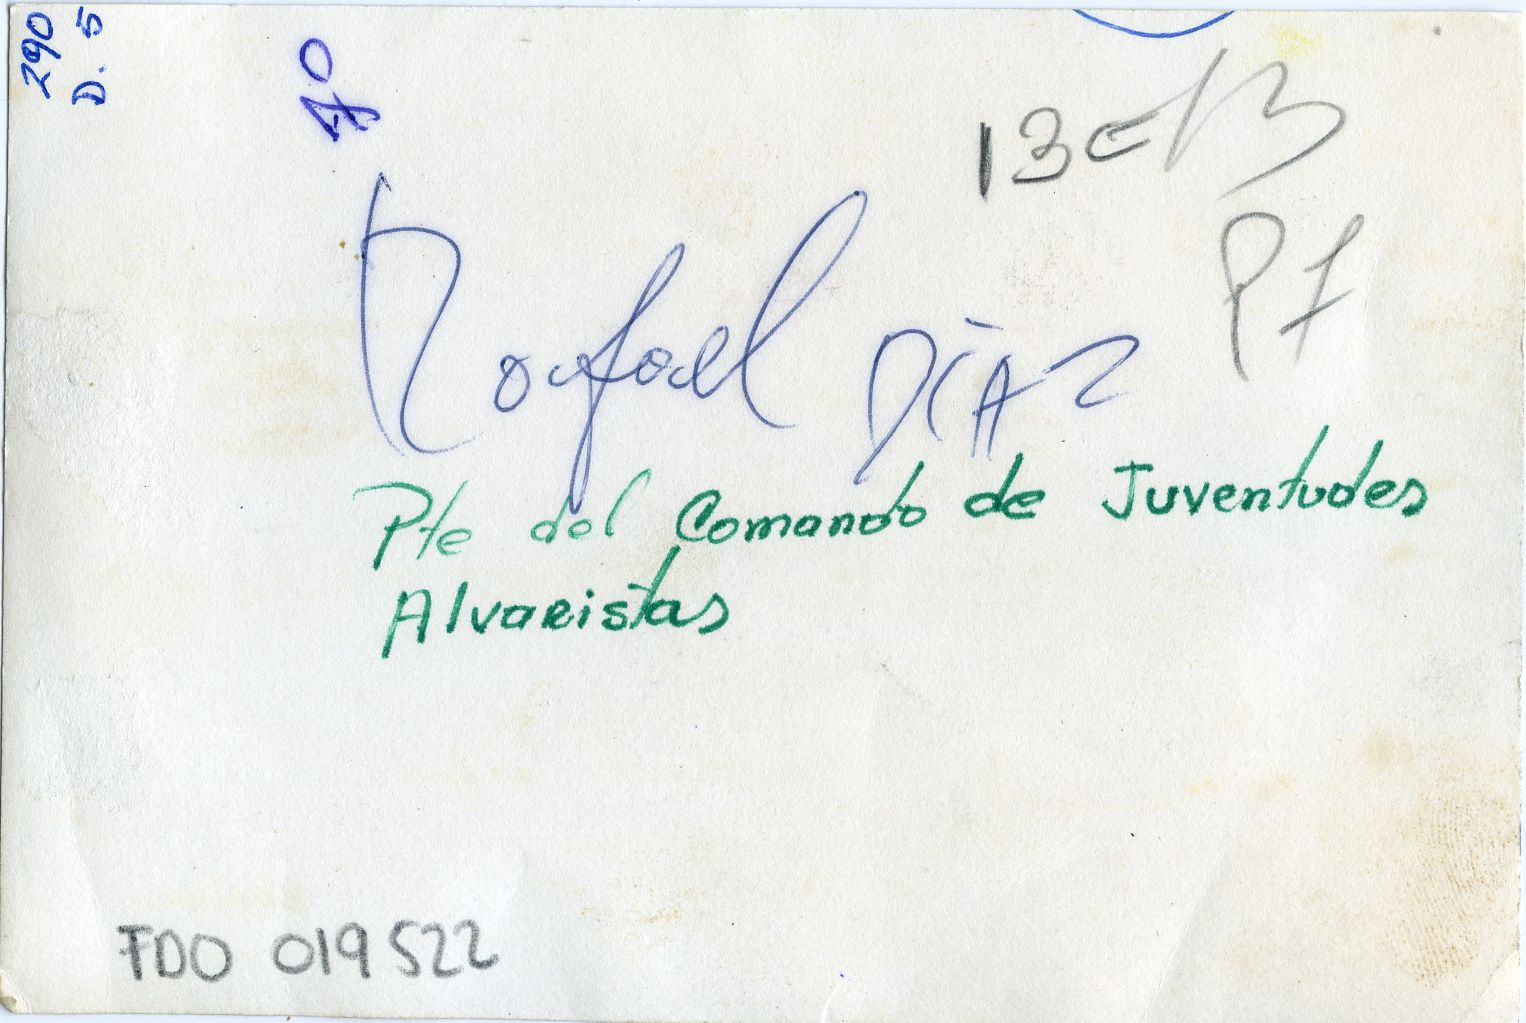 290
D. 5
70
Rafael DÍAZ
P7
Pte del Comando de Juventudes
Alvaristas
FDO 019522